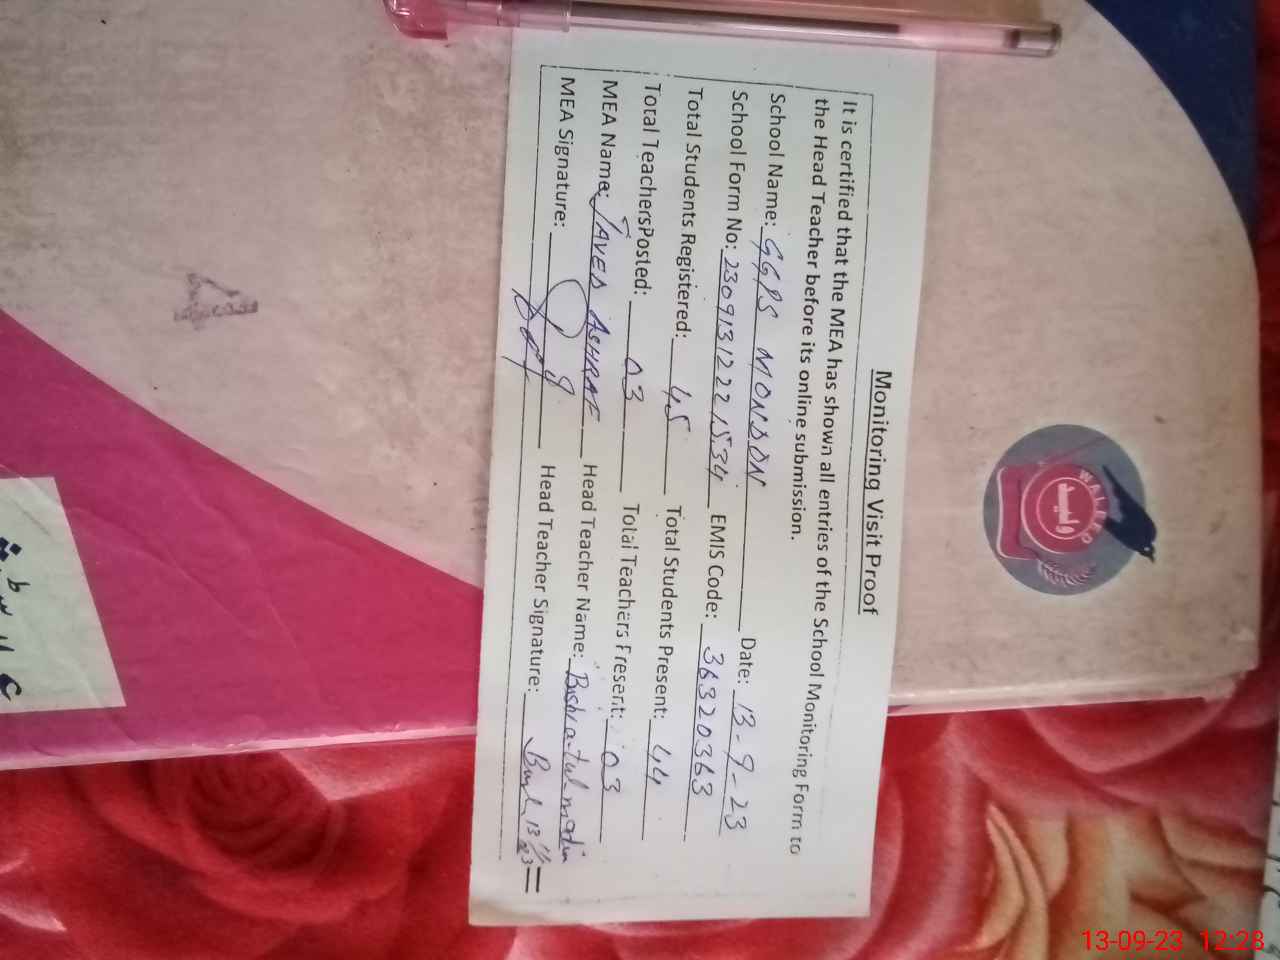 Monitoring Visit Proof
It is certified that the MEA has shown all entries of the School Monitoring Form to
the Head Teacher before its online submission.
School Name: GGPS MONDON Date: 13-9-23
School Form No: 23091312221534 EMIS Code: 36320363
Total Students Registered: 45 Total Students Present: 44
Total TeachersPosted: 03 Total Teachers Present: 03
MEA Name: JAVED ASHRAF Head Teacher Name:
MEA Signature: Head Teacher Signature:
WALEED
13-09-23 12:28